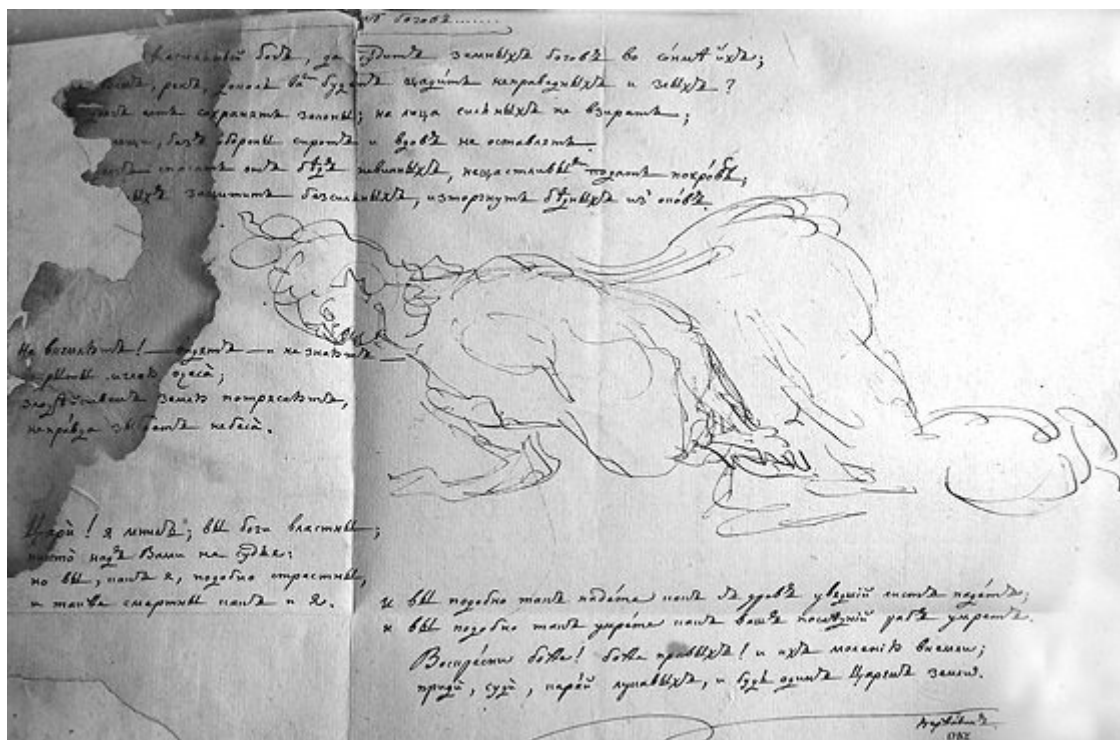 боговъ......
богъ, да судитъ земныхъ боговъ во сонмѣ ихъ;
рекъ, доколь будетъ щадить неправедныхъ и злыхъ?
сохранять законы; на лица сильныхъ не взирать;
безъ обороны сиротъ и вдовъ не оставлять.
спасать отъ бѣдъ невинныхъ, нещастливымъ подать покровъ;
защитить безсильныхъ, исторгнуть бѣдныхъ изъ оковъ.
Не внемлютъ! — видятъ — и не знаютъ
очеса;
землю потрясаютъ,
неправда небеса.
Цари! я мнилъ; вы боги властны;
никто надъ Вами не судья:
но вы, какъ я, подобно страстны,
и также смертны какъ и я.
и вы подобно такъ падете какъ съ древъ увядшій листъ падетъ;
и вы подобно такъ умрете какъ вашъ послѣдній рабъ умретъ.
Воскресни боже! боже правыхъ! и ихъ моленію внемли;
приди, суди, карай лукавыхъ, и будь одинъ Царемъ земли.